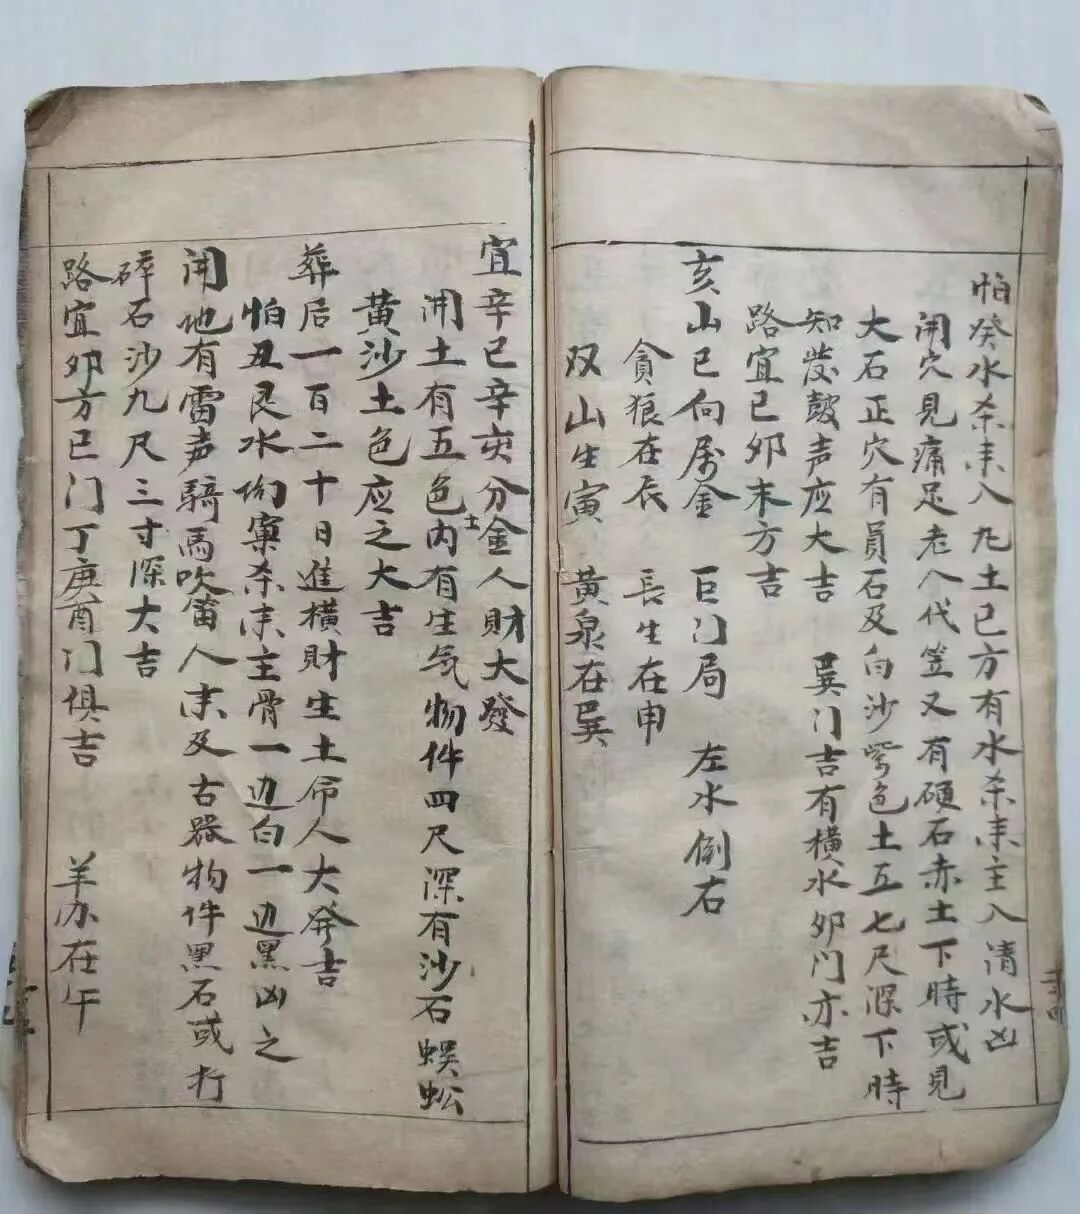 怕癸水杀耒入九土巳方有水杀耒主入清水凶
開穴見痛足老人代笠又有硬石赤土下時或見
大石正穴有員石及白沙紫色土五七尺深下時
知發皷声应大吉 巽门吉有横水夘门亦吉
路宜巳夘未方吉
亥山巳向属金 巨门局 左水倒右
貪狼在辰 長生在申
双山生寅 黄泉在巽
宜辛巳辛亥分金人財大發
開土有五色土内有生気物件四尺深有沙石蜈蚣
黄沙土色应之大吉
葬后一百二十日進横財生土命人大発吉
怕丑艮水杀耒主骨一边白一边黑凶之
開地有雷声騎馬吹笛人耒及古器物件黑石或打
碎石沙九尺三寸深大吉
路宜夘方巳门丁庚酉门俱吉 羊刃在午